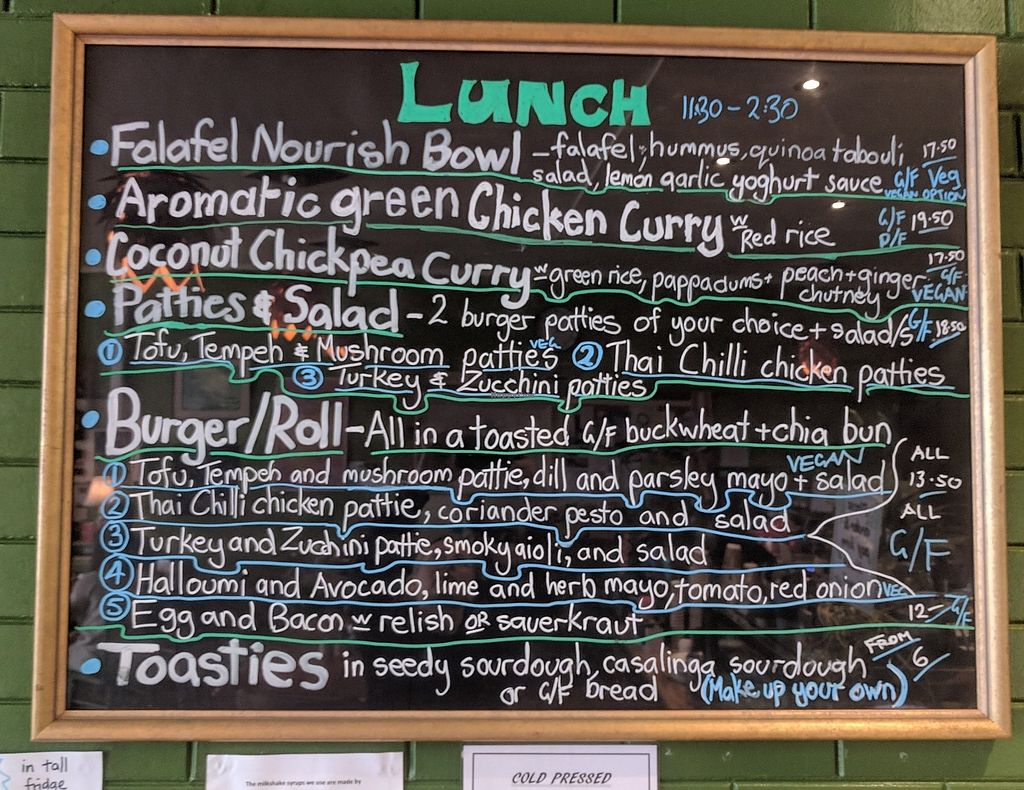 LUNCH 11:30 - 2:30
• Falafel Nourish Bowl - falafel, hummus, quinoa tabouli, 17.50
salad, lemon garlic yoghurt sauce G/F Veg
VEGAN OPTION
• Aromatic green Chicken Curry w Red rice G/F 19.50
D/F
• Coconut Chickpea Curry w green rice, pappadums + peach + ginger 17.50
chutney G/F VEGAN
• Patties & Salad - 2 burger patties of your choice + salad/s G/F 18.50
① Tofu, Tempeh & Mushroom patties VEG ② Thai Chilli chicken patties
③ Turkey & Zucchini patties
• Burger/Roll - All in a toasted G/F buckwheat + chia bun
① Tofu, Tempeh and mushroom pattie, dill and parsley mayo + salad VEGAN
② Thai Chilli chicken pattie, coriander pesto and salad
③ Turkey and Zuchini pattie, smoky aioli, and salad
④ Halloumi and Avocado, lime and herb mayo, tomato, red onion VEG
ALL
13.50
ALL
G/F
⑤ Egg and Bacon w relish OR sauerkraut 12- G/F
• Toasties in seedy sourdough, casalinga sourdough FROM 6
or G/F bread (Make up your own)
in tall
fridge
The milkshake syrups we use are made by
COLD PRESSED